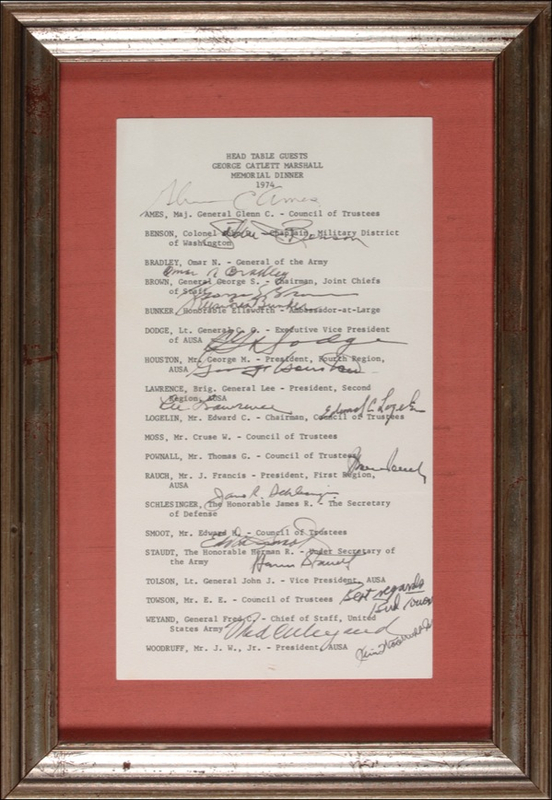 HEAD TABLE GUESTS
GEORGE CATLETT MARSHALL
MEMORIAL DINNER
1974
Glenn C Ames
AMES, Maj. General Glenn C. - Council of Trustees
BENSON, Colonel - Chaplain, Military District
of Washington
Benson
BRADLEY, Omar N. - General of the Army
Omar N Bradley
BROWN, General George S. - Chairman, Joint Chiefs
of Staff
George S Brown
Ellsworth Bunker
BUNKER, Honorable Ellsworth - Ambassador-at-Large
DODGE, Lt. General - Executive Vice President
of AUSA
Dodge
HOUSTON, Mr. George M. - President, Fourth Region,
AUSA
George Houston
LAWRENCE, Brig. General Lee - President, Second
Region, AUSA
Lee Lawrence
Edward C Logelin
LOGELIN, Mr. Edward C. - Chairman, Council of Trustees
MOSS, Mr. Cruse W. - Council of Trustees
POWNALL, Mr. Thomas G. - Council of Trustees
RAUCH, Mr. J. Francis - President, First Region,
AUSA
James R. Schlesinger
SCHLESINGER, The Honorable James R. - The Secretary
of Defense
SMOOT, Mr. Edward H. - Council of Trustees
STAUDT, The Honorable Herman R. - Under Secretary of
the Army
Herman Staudt
TOLSON, Lt. General John J. - Vice President, AUSA
Best regards
TOWSON, Mr. E. E. - Council of Trustees
WEYAND, General Fred C. - Chief of Staff, United
States Army
Fred C Weyand
WOODRUFF, Mr. J. W., Jr. - President, AUSA